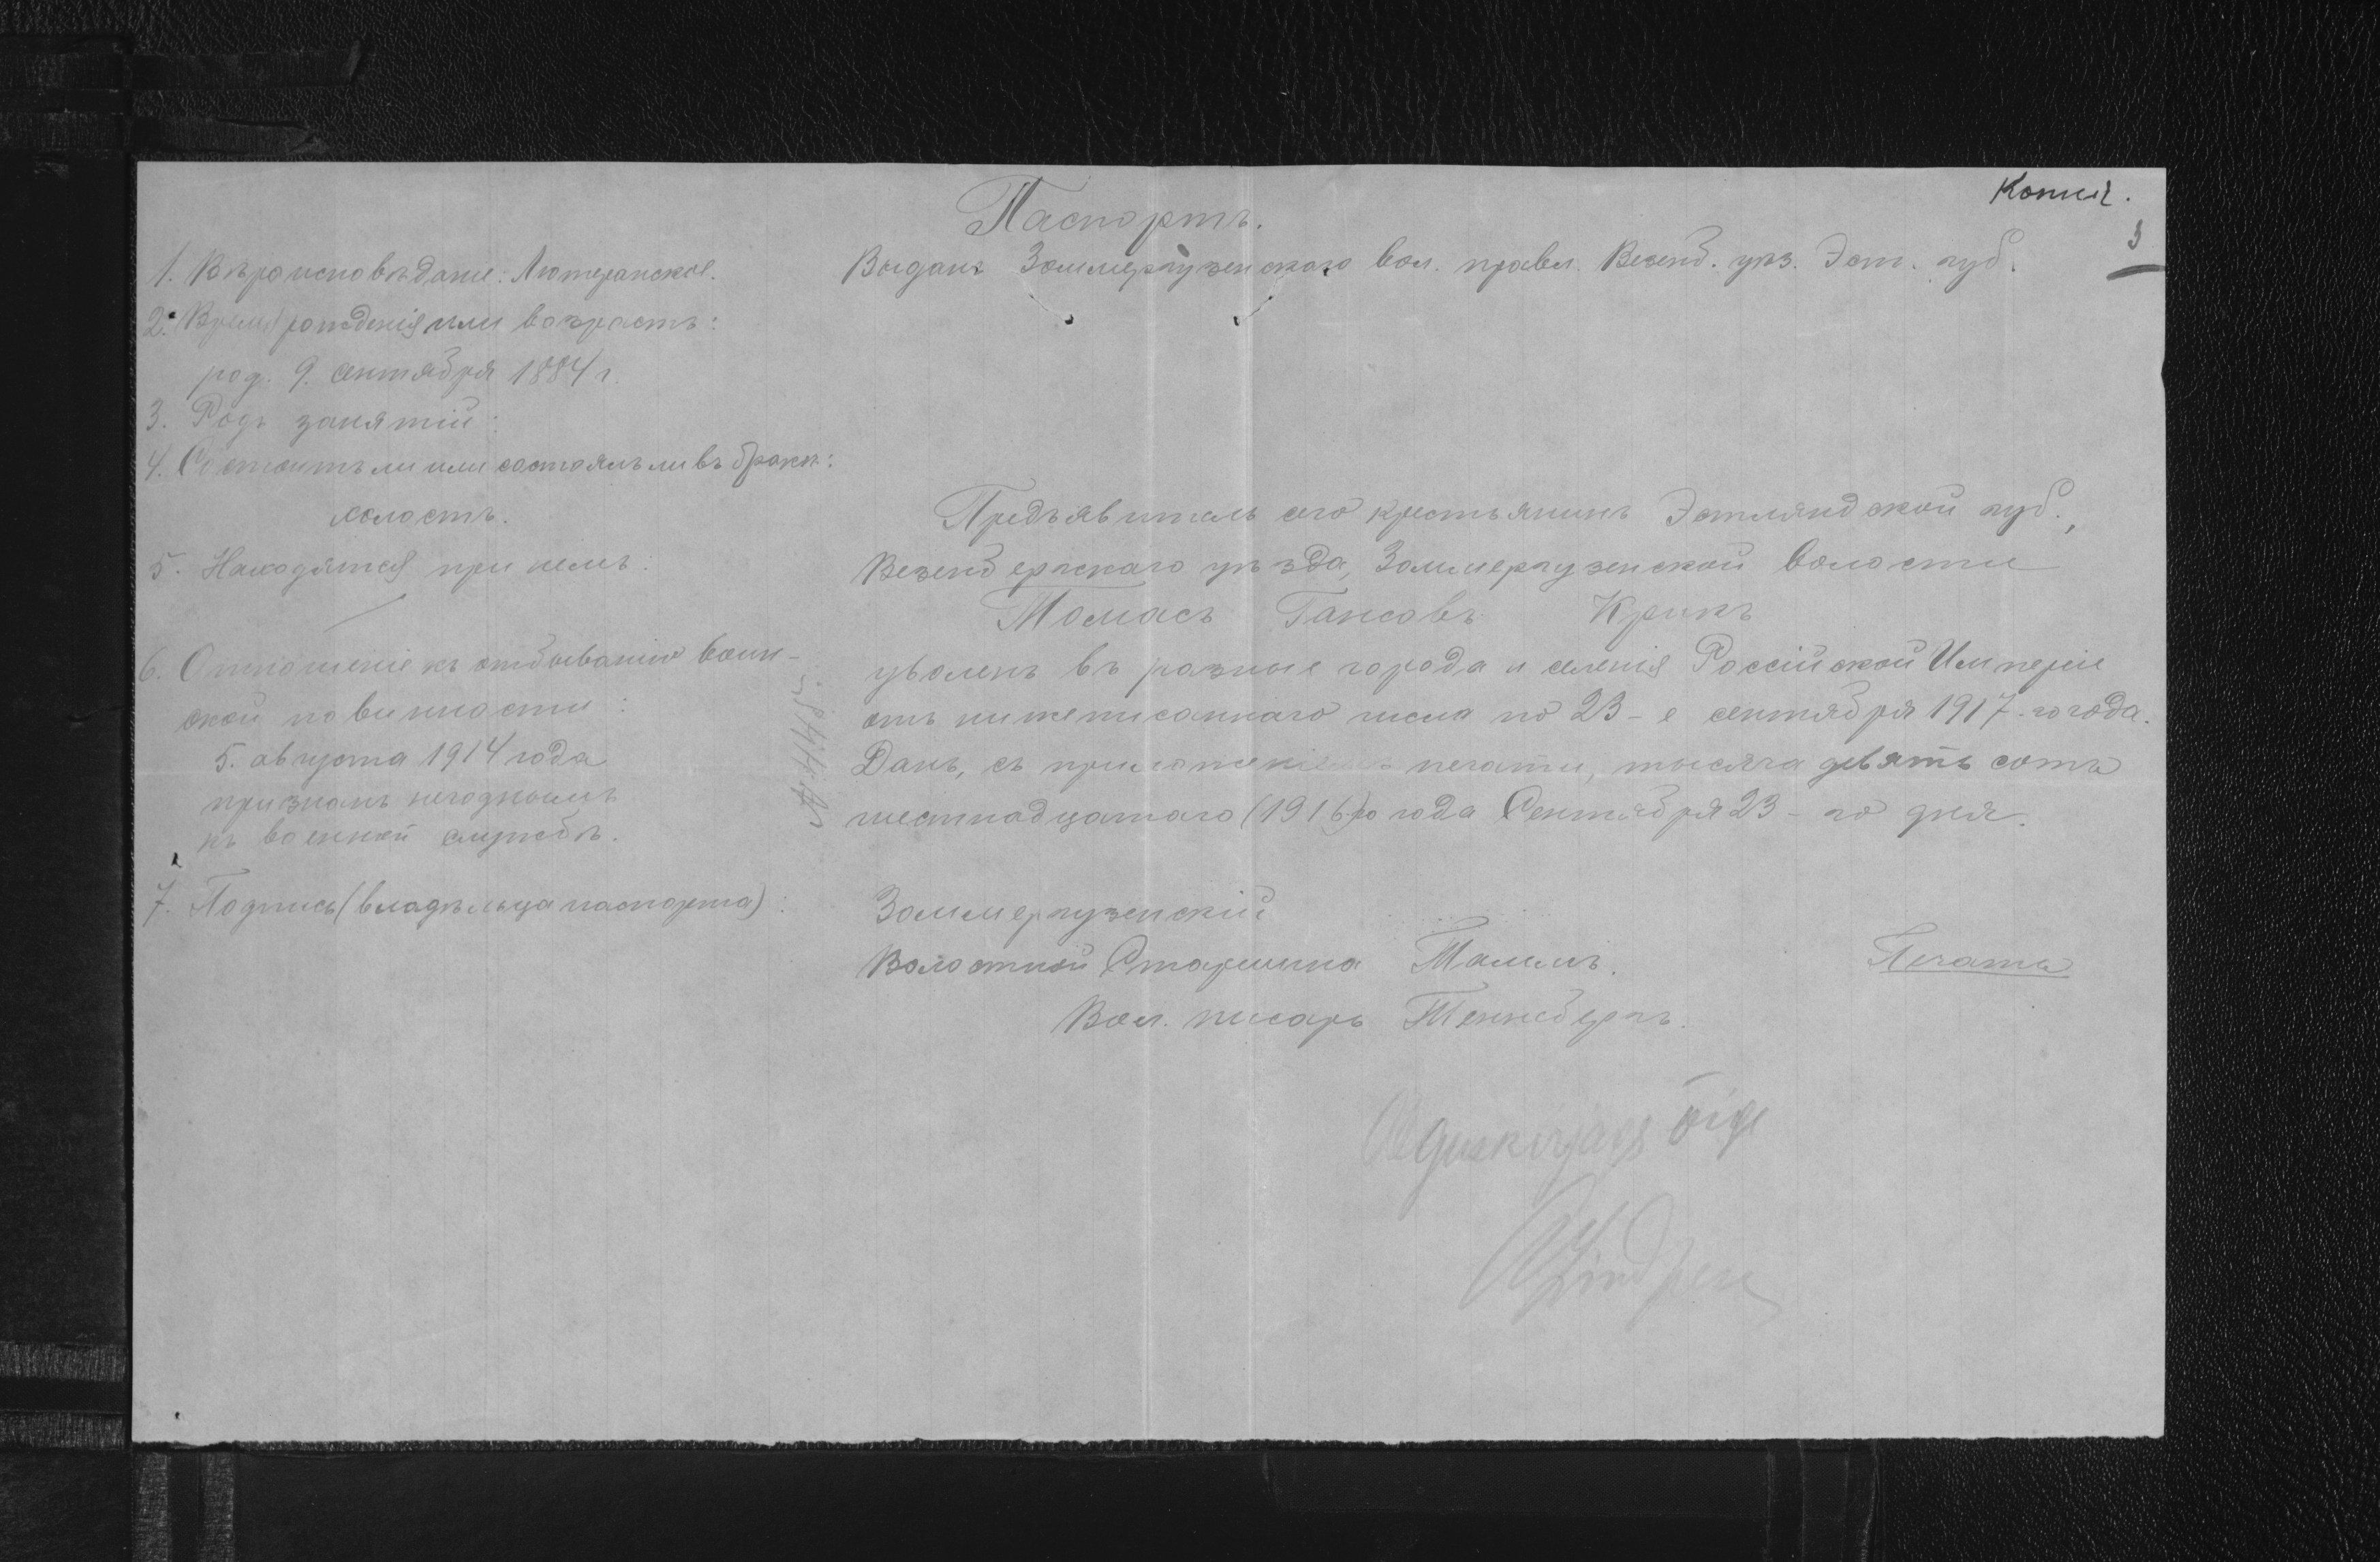 Копия.
3
Паспортъ.
Выданъ Зоммергузенскаго вол. правл. Везенб. уѣз. Эст. губ.
1. Вѣроисповѣданіе: Лютеранское.
2. Время рожденія или возрастъ:
род. 9. сентября 1884 г.
3. Родъ занятій:
4. Состоитъ ли или состоялъ ли въ бракѣ:
холостъ.
5. Находятся при немъ:
6. Отношеніе къ отбыванію воин-
ской повинности:
5. августа 1914 года
признанъ негоднымъ
къ военной службѣ.
7. Подпись (владѣльца паспорта):
Предъявитель сего крестьянинъ Эстляндской губ.,
Везенбергскаго уѣзда, Зоммергузенской волости
Томасъ Гансовъ Крикъ
уволенъ въ разные города и селенія Россійской Имперіи
отъ нижеписаннаго числа по 23-е сентября 1917-го года.
Данъ, съ приложеніемъ печати, тысяча девять сотъ
шестнадцатаго (1916) го года Сентября 23-го дня.
Зоммергузенскій
Волостной Старшина Таммъ.
Печать
Вол. писарь Теннебергъ.
Algusekirjaga õige